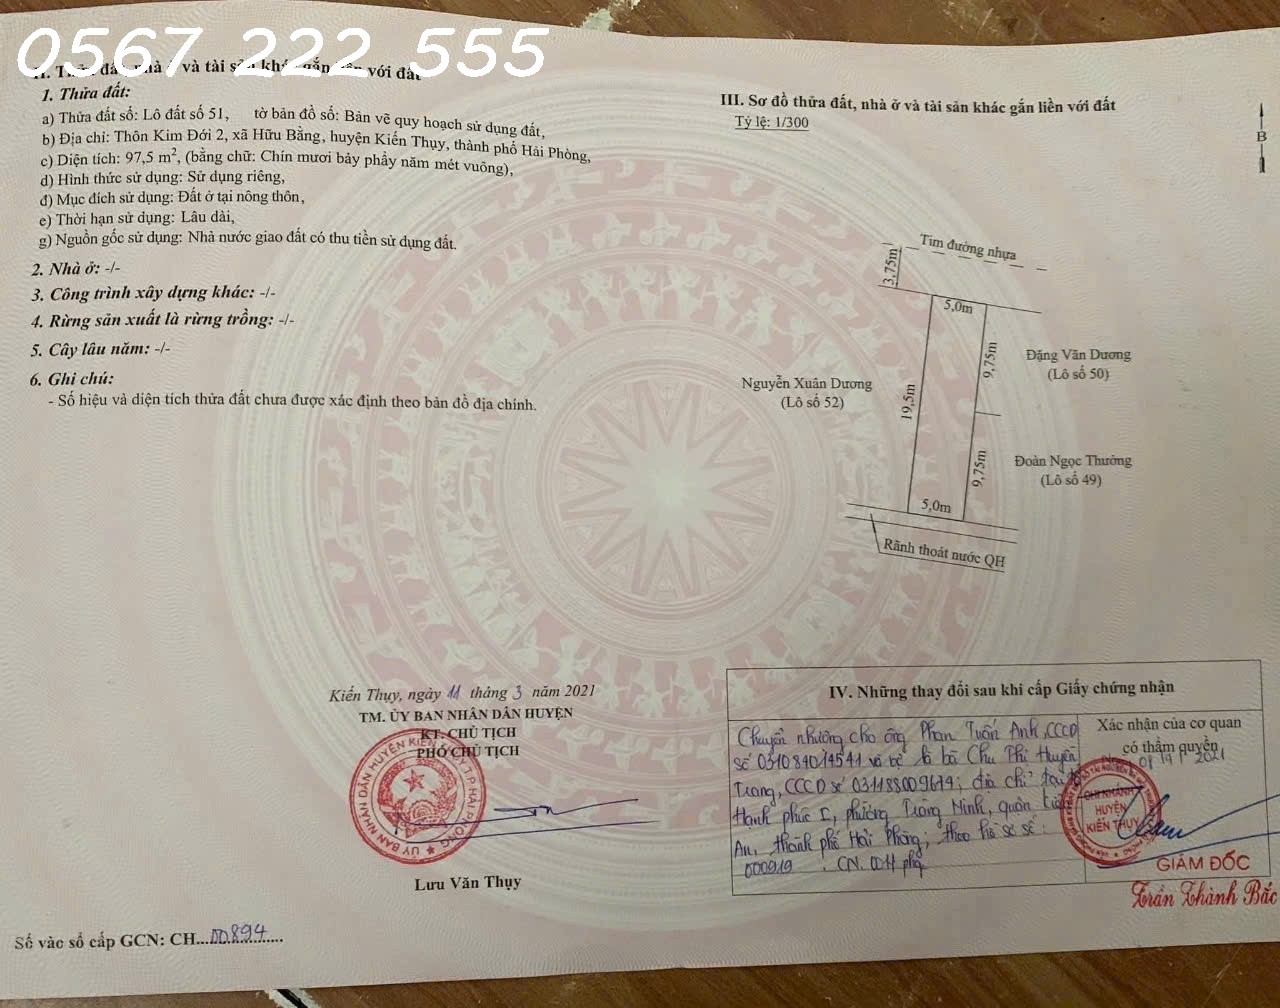 0567 222 555
II. Thửa đất, nhà ở và tài sản khác gắn liền với đất
1. Thửa đất:
a) Thửa đất số: Lô đất số 51, tờ bản đồ số: Bản vẽ quy hoạch sử dụng đất,
b) Địa chỉ: Thôn Kim Đới 2, xã Hữu Bằng, huyện Kiến Thụy, thành phố Hải Phòng,
c) Diện tích: 97,5 m², (bằng chữ: Chín mươi bảy phẩy năm mét vuông),
d) Hình thức sử dụng: Sử dụng riêng,
đ) Mục đích sử dụng: Đất ở tại nông thôn,
e) Thời hạn sử dụng: Lâu dài,
g) Nguồn gốc sử dụng: Nhà nước giao đất có thu tiền sử dụng đất.
2. Nhà ở: -/-
3. Công trình xây dựng khác: -/-
4. Rừng sản xuất là rừng trồng: -/-
5. Cây lâu năm: -/-
6. Ghi chú:
- Số hiệu và diện tích thửa đất chưa được xác định theo bản đồ địa chính.
Kiến Thụy, ngày 11 tháng 3 năm 2021
TM. ỦY BAN NHÂN DÂN HUYỆN
KT. CHỦ TỊCH
PHÓ CHỦ TỊCH
ỦY BAN NHÂN DÂN HUYỆN KIẾN THỤY T.P HẢI PHÒNG
Lưu Văn Thụy
Số vào sổ cấp GCN: CH...00894
III. Sơ đồ thửa đất, nhà ở và tài sản khác gắn liền với đất
Tỷ lệ: 1/300
B
Tim đường nhựa
3,75m
5,0m
9,75m
Đặng Văn Dương
(Lô số 50)
Nguyễn Xuân Dương
(Lô số 52)
19,5m
9,75m
Đoàn Ngọc Thưởng
(Lô số 49)
5,0m
Rãnh thoát nước QH
IV. Những thay đổi sau khi cấp Giấy chứng nhận
Chuyển nhượng cho ông Phan Tuấn Anh, CCCD
số 031084014541 và bà Chu Thị Huyền
Trang, CCCD số ; địa chỉ tại
Hạnh phúc I, phường Tràng Minh, quận Kiến
An, thành phố Hải Phòng; theo hồ sơ số:
000919 . CN.
Xác nhận của cơ quan
có thẩm quyền
2021
CHI NHÁNH
HUYỆN
KIẾN THỤY
GIÁM ĐỐC
Trần Thành Bắc